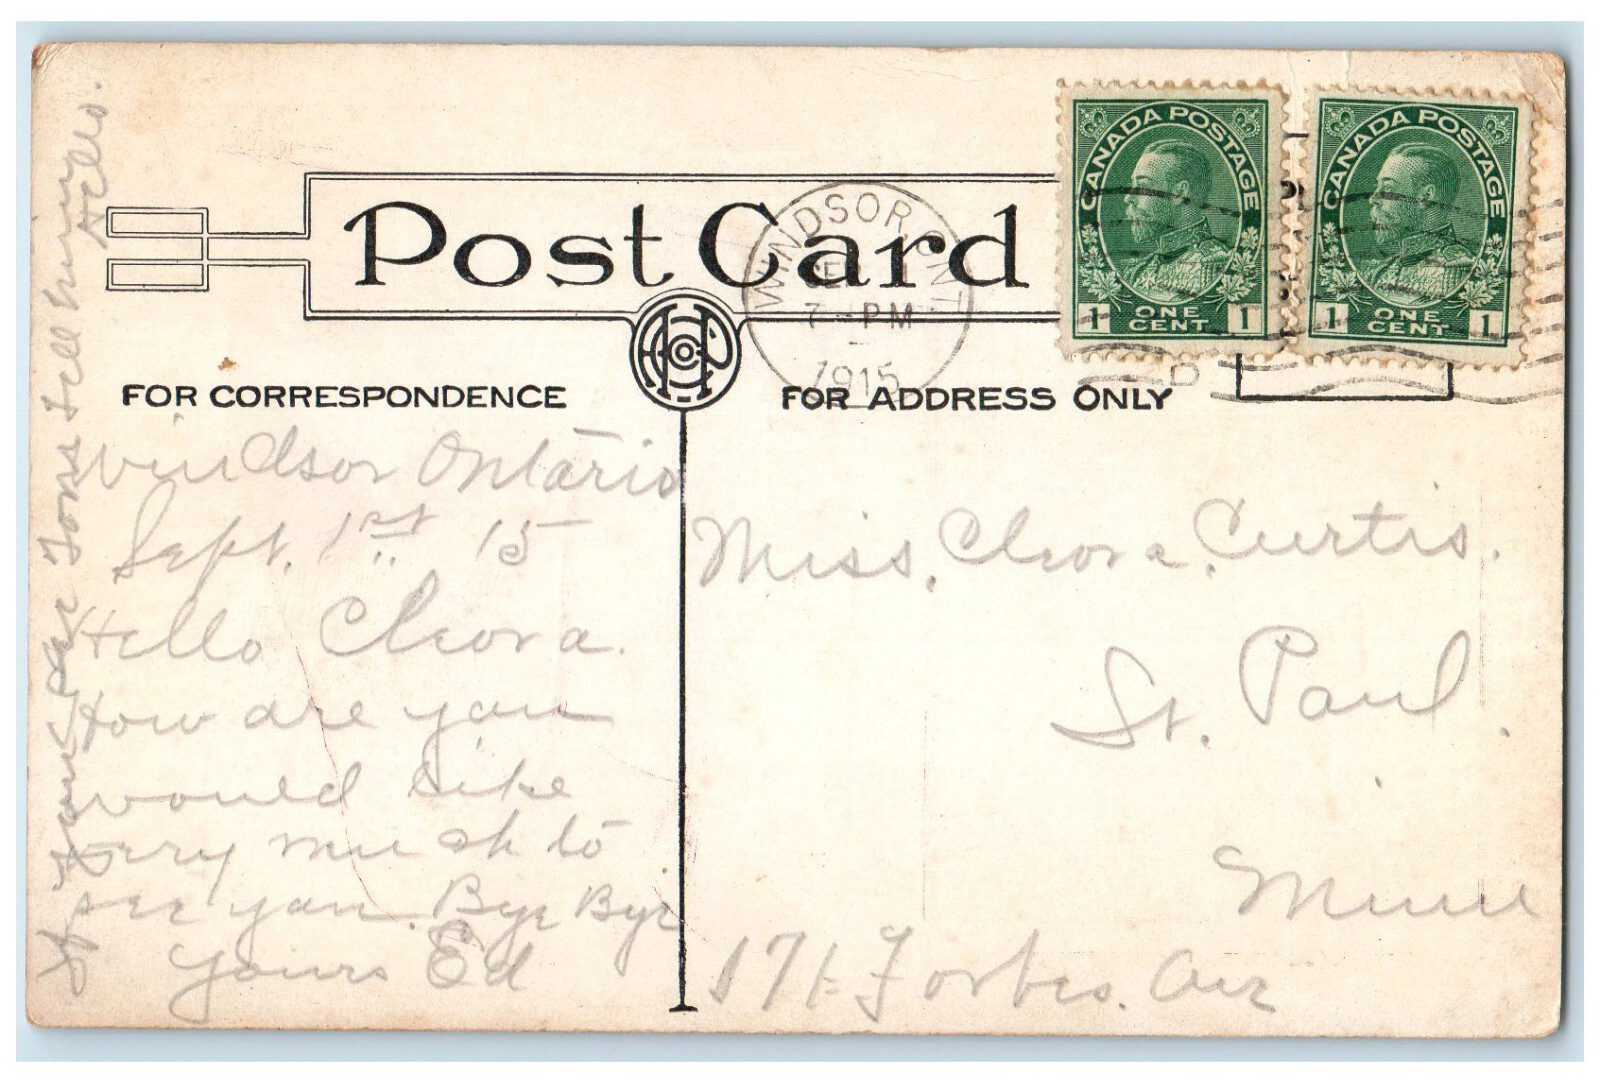 Post Card
WINDSOR, ONT
7 - PM
1915
CANADA POSTAGE
1 ONE CENT 1
CANADA POSTAGE
1 ONE CENT 1
FOR CORRESPONDENCE
FOR ADDRESS ONLY
Windsor Ontario
Sept. 1st 15
Hello Cleora.
How are you
would like
very much to
see you. Bye Bye
yours Ed
If you see Tom Tell him
Hello.
Miss. Cleora. Curtis.
St. Paul.
Minn
171 Forbes. Ave